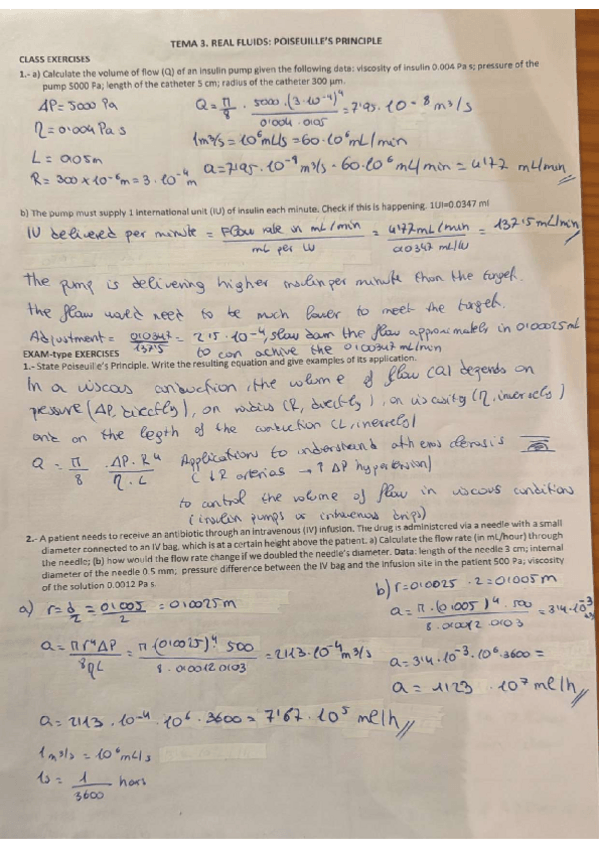 TEMA 3. REAL FLUIDS: POISEUILLE'S PRINCIPLE
CLASS EXERCISES
1.- a) Calculate the volume of flow (Q) of an insulin pump given the following data: viscosity of insulin 0.004 Pa s; pressure of the
pump 5000 Pa; length of the catheter 5 cm; radius of the catheter 300 µm.
ΔP = 5000 Pa
η = 0'004 Pa s
L = 0'05m
R = 300 x 10⁻⁶m = 3 · 10⁻⁴ m
Q = π/8 · 5000 · (3·10⁻⁴)⁴ / 0'004 · 0'05 = 7'95 · 10⁻⁸ m³/s
1m³/s = 10⁶mL/s = 60·10⁶mL/min
Q = 7'95 · 10⁻⁸ m³/s · 60·10⁶ mL/min = 4'77 mL/min
b) The pump must supply 1 international unit (IU) of insulin each minute. Check if this is happening. 1UI=0.0347 ml
IU delivered per minute = Flow rate in mL/min / mL per IU = 4'77mL/min / 0'0347 mL/IU = 137'5 mL/min
The pump is delivering higher insulin per minute than the target.
the flow would need to be much lower to meet the target.
Adjustment = 0'0347 / 137'5 = 2'5 · 10⁻⁴, slow dam the flow approximately in 0'00025mL
to can achive the 0'00347 mL/min
EXAM-type EXERCISES
1.- State Poiseuille's Principle. Write the resulting equation and give examples of its application.
In a viscous conduction, the volume of flow (Q) depends on
pressure (ΔP, directly), on radius (R, directly), on viscosity (η, inversely)
and on the legth of the conduction (L, inversely)
Q = π/8 · ΔP · R⁴ / η · L
Applications to understand atherosclerosis
(↓R arterias → ↑ ΔP hypertension)
to control the volume of flow in viscous conditions
(insulin pumps or intravenous drips)
2.- A patient needs to receive an antibiotic through an intravenous (IV) infusion. The drug is administered via a needle with a small
diameter connected to an IV bag, which is at a certain height above the patient. a) Calculate the flow rate (in mL/hour) through
the needle; (b) how would the flow rate change if we doubled the needle's diameter. Data: length of the needle 3 cm; internal
diameter of the needle 0.5 mm; pressure difference between the IV bag and the infusion site in the patient 500 Pa; viscosity
of the solution 0.0012 Pa s.
a) r = d/2 = 0'005/2 = 0'0025m
Q = πr⁴ΔP / 8ηL = π(0'0025)⁴ · 500 / 8 · 0'0012 · 0'03 = 2'13 · 10⁻⁴ m³/s
Q = 2'13 · 10⁻⁴ · 10⁶ · 3600 = 7'67 · 10⁵ ml/h
1m³/s = 10⁶ mL/s
1s = 1/3600 hours
b) r = 0'0025 · 2 = 0'005 m
Q = π · (0'005)⁴ · 500 / 8 · 0'0012 · 0'03 = 3'4 · 10⁻³
Q = 3'4 · 10⁻³ · 10⁶ · 3600 =
Q = 1'123 · 10⁷ ml/h